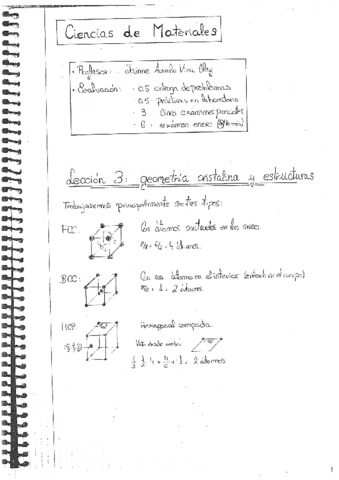 Ciencias de Materiales
• Profesor: Jaime
• Evaluación: · 0.5 entrega de problemas
· 0.5 prácticas en laboratorio
· 3 cinco exámenes parciales
· 6 exámen enero
Lección 3: geometría cristalina y estructuras
Trabajaremos principalmente con tres tipos:
FCC:
Con átomos centrados en las caras.
= 4 átomos.
BCC:
Con un átomo en el interior (centrado en el cuerpo)
8/8 + 1 = 2 átomos
HCP:
Hexagonal compacta
Vista desde arriba:
+ 1 = 2 átomos
1